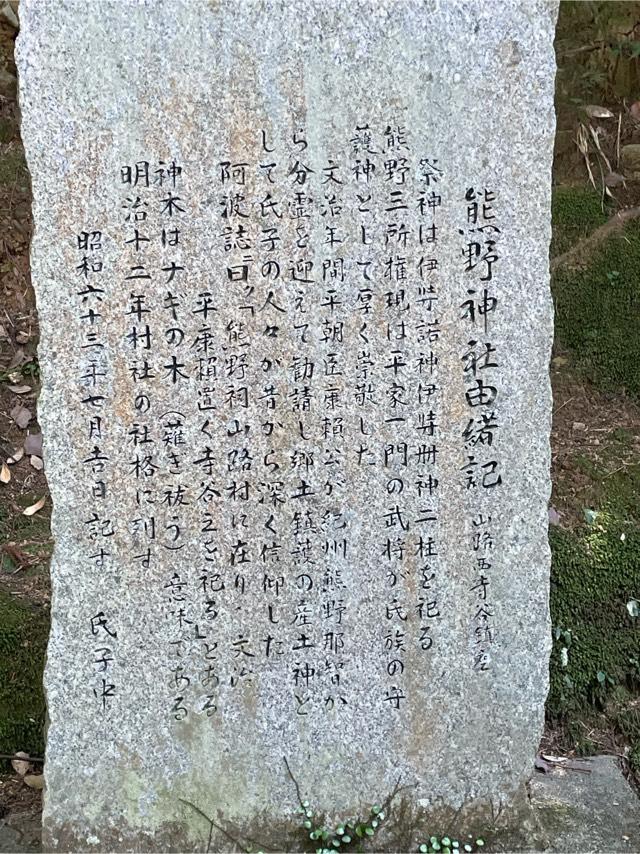 熊野神社由緒記 山路西寺谷鎮座
祭神は伊弉諾神伊弉册神二柱を祀る
熊野三所権現は平家一門の武将が氏族の守
護神として厚く崇敬した
文治年間平朝臣康頼公が紀州熊野那智か
ら分霊を迎えて勧請し郷土鎮護の産土神と
して氏子の人々が昔から深く信仰した
阿波誌曰ク「熊野祠山路村に在り、文治
平康頼置く寺谷之を祀る」とある
神木はナギの木(薙き祓う)意味である
明治十二年村社の社格に列す
昭和六十三年七月吉日記す 氏子中